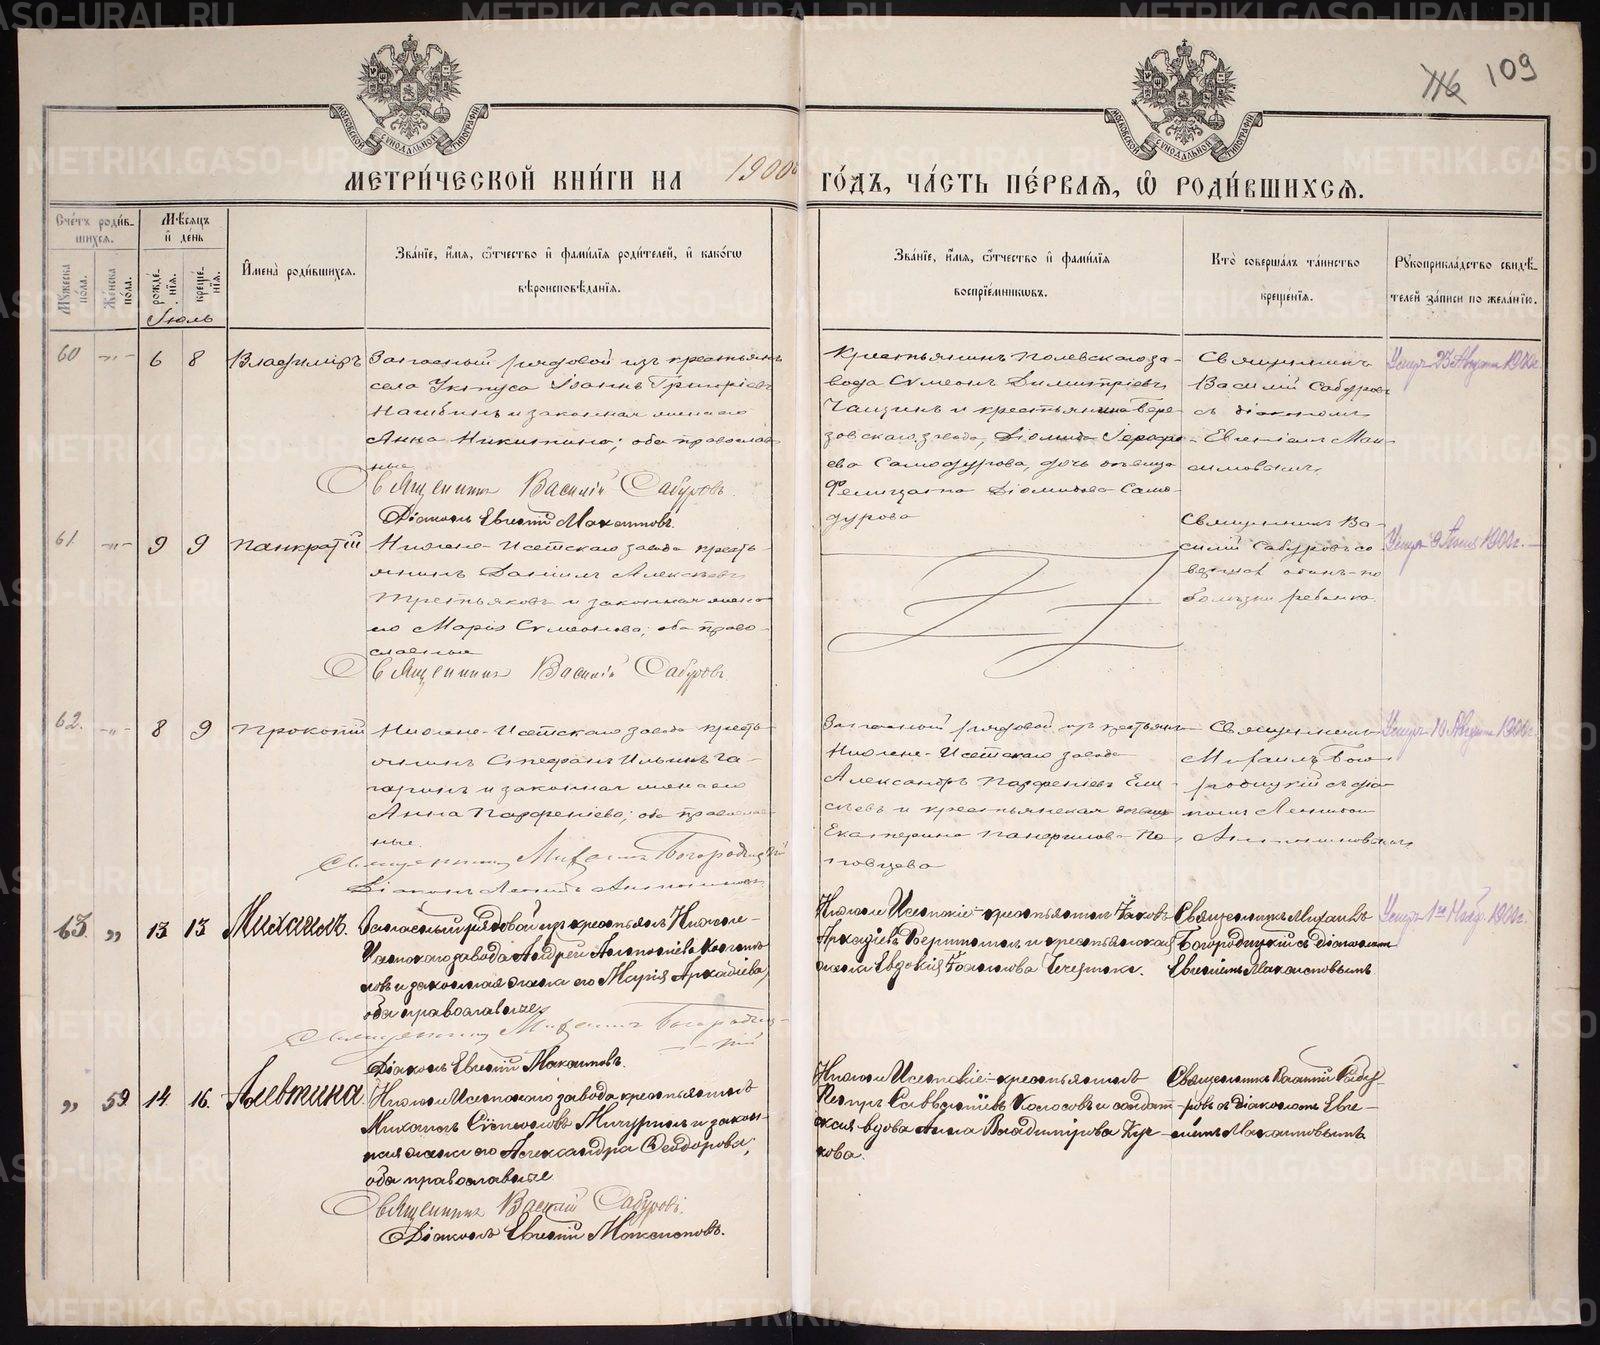 116 109
МЕТРИ́ЧЕСКОЙ КНИ́ГИ НА 1900й ГО́ДЪ, ЧА́СТЬ ПЕ́РВАЯ, Ѽ РОДИ́ВШИХСЯ.
Сче́тъ роди́в-
шихся.
Мꙋ́жеска по́ла.
Же́нска по́ла.
Мѣ́сяцъ
и҆ де́нь
рожде́-
нїѧ.
креще́-
нїѧ.
Имена̀ роди́вшихся.
Зва́нїе, и҆́мя, ѻ҆́тчество и҆ фами́лїя роди́телей, и҆ како́гѡ
вѣроисповѣ́данїя.
Зва́нїе, и҆́мя, ѻ҆́тчество и҆ фами́лїя
воспрїе́мникѡвъ.
Кто̀ соверша́лъ та́инство
креще́нїя.
Рꙋкоприкла́дство свидѣ́-
телей за́писи по жела́нїю.
Іюль
60 „ 6 8 Владиміръ
Запасный рядовой изъ крестьянъ
села Уктуса Іоаннъ Григоріевъ
и законная жена его
Анна Никитина; оба православ-
ные
Священникъ Василій Сабуровъ.
Діаконъ Евгеній Максимовъ.
Крестьянинъ Полевскаго за-
вода Сѵмеонъ Димитріевъ
и крестьянина Бере-
зовскаго завода, Діомида
ева Самодурова, дочь девица
Фелицата Діомидова Само-
дурова
Священникъ
Василій Сабуровъ
съ діакономъ
Евгеніемъ Мак-
симовымъ.
Умеръ 23 Августа 1900г.
61. „ 9 9 Панкратій
Нижне-Исетскаго завода кресть-
янинъ Даніилъ Алексѣевъ
Третьяковъ и законная жена
его Марія Сѵмеонова; оба право-
славные
Священникъ Василій Сабуровъ
Священникъ Ва-
силій Сабуровъ со-
вершалъ одинъ по
болѣзни ребенка.
Умеръ 9 Іюля 1900г.
62. „ 8 9 Прокопій
Нижне-Исетскаго завода кресть-
янинъ Стефанъ Ильинъ Га-
гаринъ и законная жена его
Анна Парфеніева; оба православ-
ные.
Священникъ Михаилъ Богородицкій
Діаконъ Леонидъ
Запасный рядовой изъ крестьянъ
Нижне-Исетскаго завода
Александръ Парфеніевъ Ели-
сѣевъ и крестьянская девица
Екатерина Панфилова По-
повцева
Священникъ
Михаилъ Бого-
родицкій съ діа-
кономъ Леонидомъ
Умеръ 10 Августа 1900г.
63. „ 13 13 Михаилъ.
Запасный рядовой изъ крестьянъ Нижне-
Исетскаго завода Андрей
и законная жена его Марія Аркадіева,
оба православные.
Священникъ Михаилъ Богородиц-
кій
Діаконъ Евгеній Максимовъ.
Нижне Исетскіе крестьянинъ Іаковъ
Аркадіевъ и крестьянская
жена Евдокія
Священникъ Михаилъ
Богородицкій съ діакономъ
Евгеніемъ Максимовымъ
Умеръ 1го Нояб. 1900г.
„ 59 14 16. Алевтина.
Нижне Исетскаго завода крестьянинъ
Михаилъ Мичуринъ и закон-
ная жена его Александра Ѳеодорова,
оба православные
Священникъ Василій Сабуровъ.
Діаконъ Евгеній Максимовъ.
Нижне Исетскіе крестьянинъ
Петръ Савватіевъ Колосовъ и солдат-
ская вдова Анна Владимірова Куч-
кова.
Священникъ Василій Сабу-
ровъ съ діакономъ Евге-
ніемъ Максимовымъ